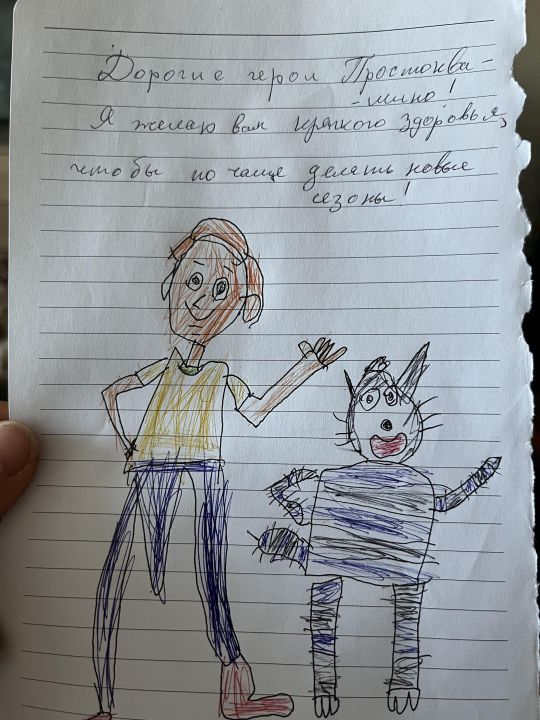 Дорогие герои Простоква-
-шино!
Я желаю вам крепкого здоровья,
чтобы по чаще делать новые
сезоны!